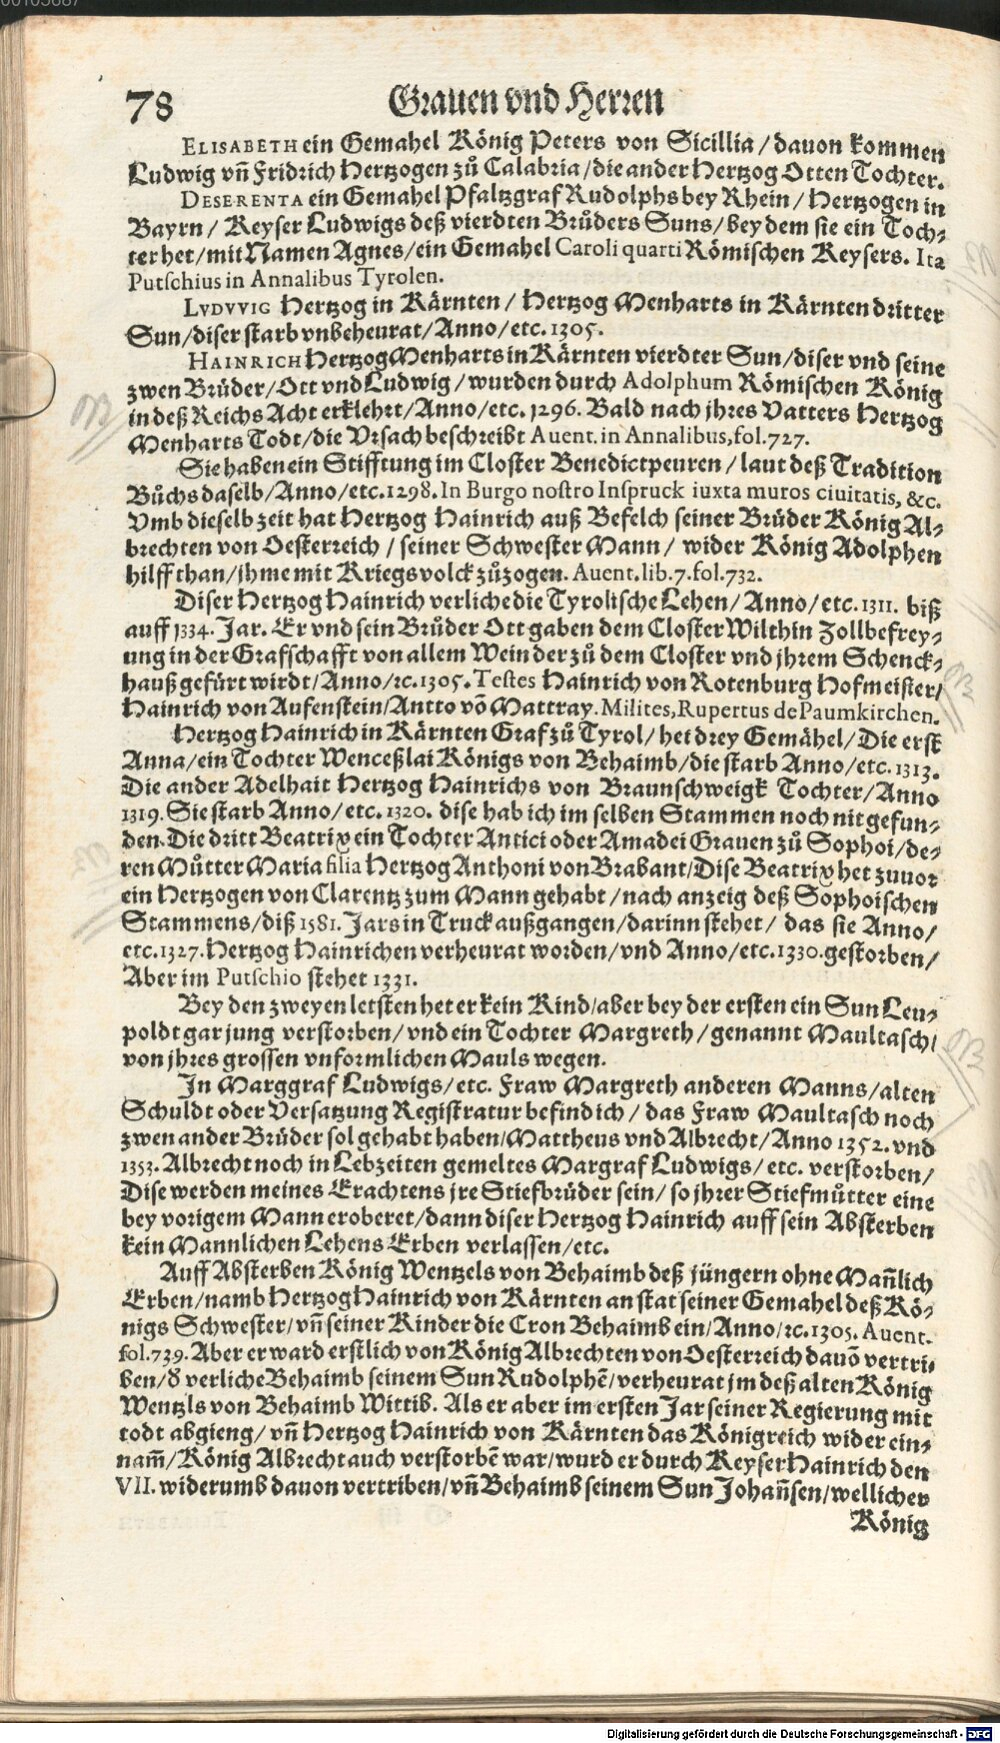 00103087
78 Grauen vnd Herren
ELISABETH ein Gemahel König Peters von Sicillia / dauon kommen
Ludwig vñ Fridrich Hertzogen zů Calabria / die ander Hertzog Otten Tochter.
DESERENTA ein Gemahel Pfaltzgraf Rudolphs bey Rhein / Hertzogen in
Bayrn / Keyser Ludwigs deß vierdten Brůders Suns / bey dem sie ein Toch-
ter het / mit Namen Agnes / ein Gemahel Caroli quarti Römischen Keysers. Ita
Putschius in Annalibus Tyrolen.
LVDVVIG Hertzog in Kärnten / Hertzog Menharts in Kärnten dritter
Sun / diser starb vnbeheurat / Anno / etc. 1305.
HAINRICH Hertzog Menharts in Kärnten vierdter Sun / diser vnd seine
zwen Brüder / Ott vnd Ludwig / wurden durch Adolphum Römischen König
in deß Reichs Acht erklehrt / Anno / etc. 1296. Bald nach jhres Vatters Hertzog
Menharts Todt / die Vrsach beschreibt Auent. in Annalibus, fol. 727.
Sie haben ein Stifftung im Closter Benedictpeuren / laut deß Tradition
Bůchs daselb / Anno / etc. 1298. In Burgo nostro Inspruck iuxta muros ciuitatis, &c.
Vmb dieselb zeit hat Hertzog Hainrich auß Befelch seiner Brüder König Al-
brechten von Oesterreich / seiner Schwester Mann / wider König Adolphen
hilff than / jhme mit Kriegsvolck zůzogen. Auent. lib. 7. fol. 732.
Diser Hertzog Hainrich verliche die Tyrolische Lehen / Anno / etc. 1311. biß
auff 1334. Jar. Er vnd sein Brůder Ott gaben dem Closter Wilthin Zollbefrey-
ung in der Grafschafft von allem Wein der zů dem Closter vnd jhrem Schenck-
hauß gefürt wirdt / Anno / ꝛc. 1305. Testes Hainrich von Rotenburg Hofmeister /
Hainrich von Aufenstein / Antto võ Mattray. Milites, Rupertus de Paumkirchen.
Hertzog Hainrich in Kärnten Graf zů Tyrol / het drey Gemähel / Die erst
Anna / ein Tochter Wenceßlai Königs von Behaimb / die starb Anno / etc. 1313.
Die ander Adelhait Hertzog Hainrichs von Braunschweigk Tochter / Anno
1319. Sie starb Anno / etc. 1320. dise hab ich im selben Stammen noch nit gefun-
den. Die dritt Beatrix ein Tochter Antici oder Amadei Grauen zů Sophoi / de-
ren Můtter Maria filia Hertzog Anthoni von Brabant / Dise Beatrix het zuuor
ein Hertzogen von Clarentz zum Mann gehabt / nach anzeig deß Sophoischen
Stammens / diß 1581. Jars in Truck außgangen / darinn stehet / das sie Anno /
etc. 1327. Hertzog Hainrichen verheurat worden / vnd Anno / etc. 1330. gestorben /
Aber im Putschio stehet 1331.
Bey den zweyen letsten het er kein Kind / aber bey der ersten ein Sun Leu-
poldt gar jung verstorben / vnd ein Tochter Margreth / genannt Maultasch /
von jhres grossen vnformlichen Mauls wegen.
In Marggraf Ludwigs / etc. Fraw Margreth anderen Manns / alten
Schuldt oder Versatzung Registratur befind ich / das Fraw Maultasch noch
zwen ander Brüder sol gehabt haben / Mattheus vnd Albrecht / Anno 1352. vnd
1353. Albrecht noch in Lebzeiten gemeltes Margraf Ludwigs / etc. verstorben /
Dise werden meines Erachtens jre Stiefbrüder sein / so jhrer Stiefmůtter eine
bey vorigem Mann eroberet / dann diser Hertzog Hainrich auff sein Absterben
kein Mannlichen Lehens Erben verlassen / etc.
Auff Absterben König Wentzels von Behaimb deß jüngern ohne Mañlich
Erben / namb Hertzog Hainrich von Kärnten an stat seiner Gemahel deß Kö-
nigs Schwester / vñ seiner Kinder die Cron Behaimb ein / Anno / ꝛc. 1305. Auent.
fol. 739. Aber er ward erstlich von König Albrechten von Oesterreich dauõ vertri-
ben / d̕ verliche Behaimb seinem Sun Rudolphẽ / verheurat jm deß alten König
Wentzls von Behaimb Wittib. Als er aber im ersten Jar seiner Regierung mit
todt abgieng / vñ Hertzog Hainrich von Kärnten das Königreich wider ein-
nam̃ / König Albrecht auch verstorbẽ war / wurd er durch Keyser Hainrich den
VII. widerumb dauon vertriben / vñ Behaimb seinem Sun Johañsen / wellicher
König
Digitalisierung gefördert durch die Deutsche Forschungsgemeinschaft - DFG